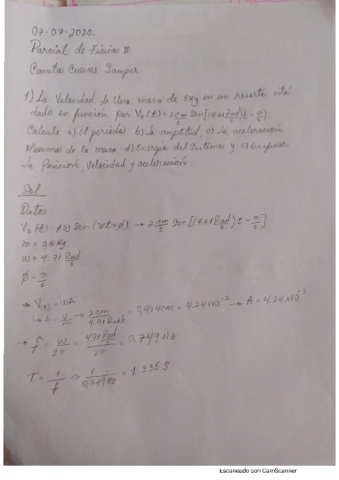 07-07-2020.
Parcial de Fisica II
Camilas Cuevas Jamper
1) La Velocidad de Una masa de 5kg en un resorte está
dado en función por Vx(t) = 2 cm/s Sen[(4.71 Rad/s)t - π/2].
Calcule a) el periodo b) la amplitud, c) La aceleración
Maxima de la masa d) Energia del Sistema y e) Graficar
La Posición Velocidad y aceleración
Sol
Datos
Vx(t) = Aw Sen(wt+φ) → 2 cm/s Sen[(4.71 Rad/s)t - π/2]
m = 0,5kg
w = 4.71 Rad/s
φ = π/2
→ = wA
2 cm/s / 4.71 Rad/s = 0,424cm = 4.24x10⁻³ → A = 4.24x10⁻³
→ f = w/2π = 4.71 Rad/s / 2π = 0,749 Hz
T = 1/f → 1/0,749Hz = 1.335 S
Escaneado con CamScanner